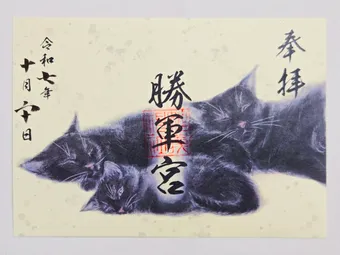 奉拝
勝軍宮
令和七年
十月二十日